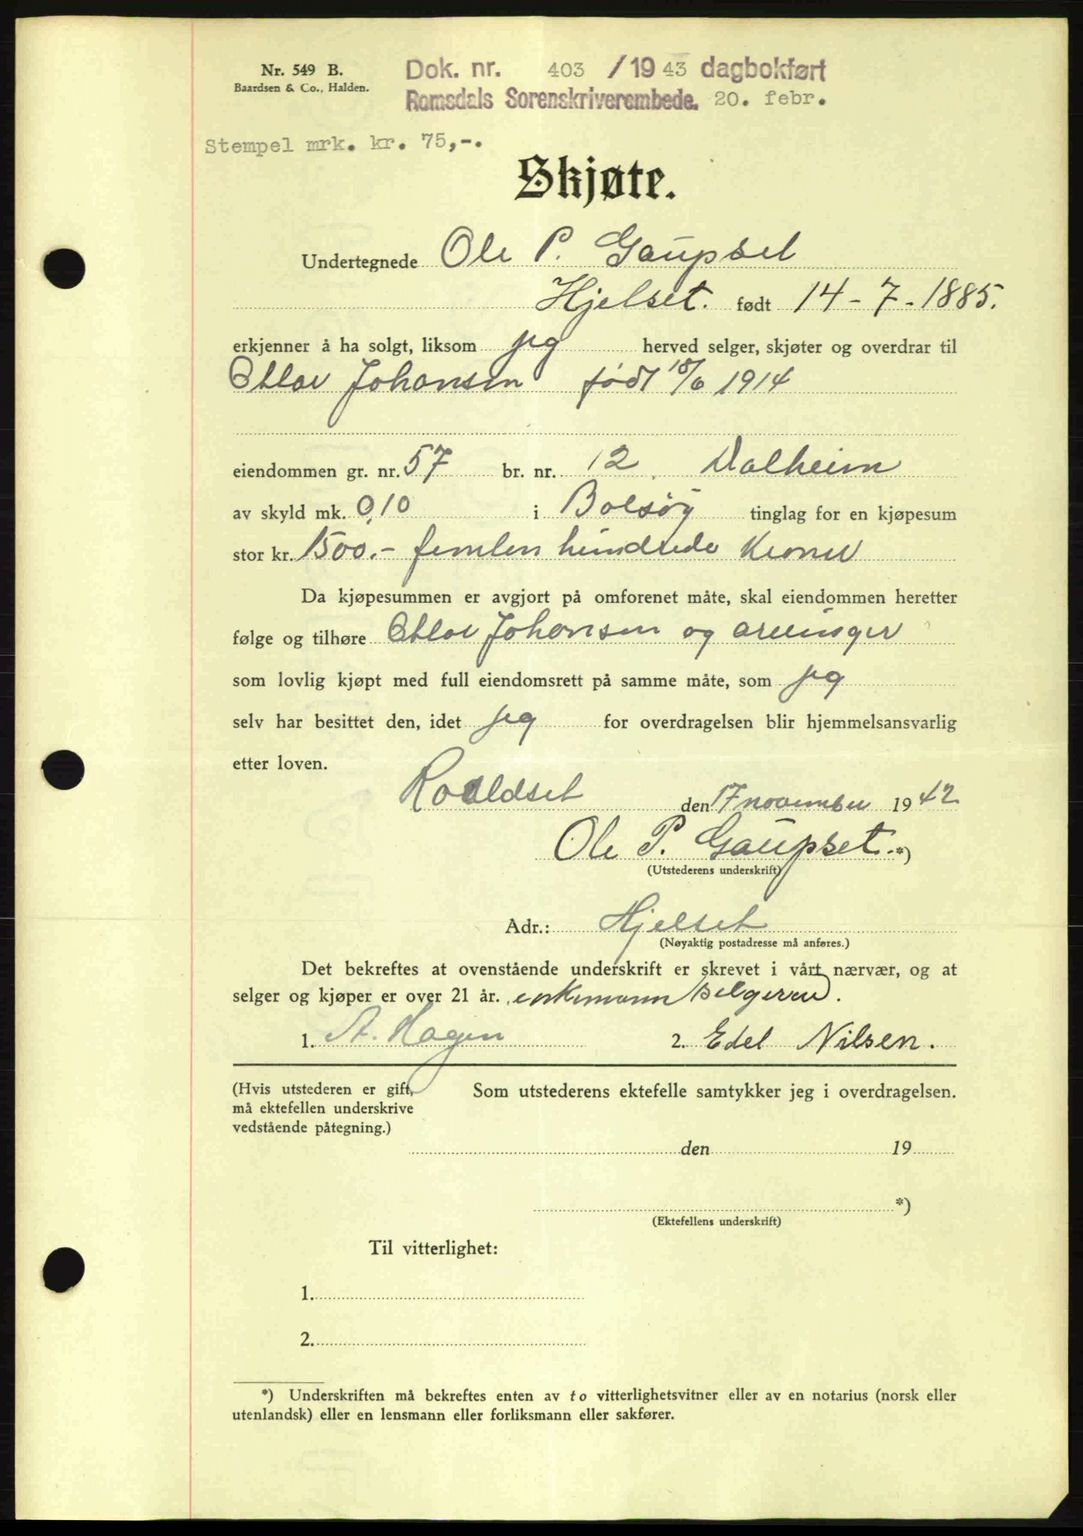 Nr. 549 B.
Baardsen & Co., Halden.
Dok. nr. 403 /1943 dagbokført
Romsdals Sorenskriverembede. 20. febr.
Stempel mrk. kr. 75,-.
Skjøte.
Undertegnede Ole P. Gaupset
Hjelset. født 14-7-1885.
erkjenner å ha solgt, liksom jeg herved selger, skjøter og overdrar til
Johansen født 18/6 1914
eiendommen gr. nr. 57 br. nr. 12. Dalheim
av skyld mk. 0,10 i Bolsøy tinglag for en kjøpesum
stor kr. 1500.- femten hundrede Kroner
Da kjøpesummen er avgjort på omforenet måte, skal eiendommen heretter
følge og tilhøre Johansen og arvinger
som lovlig kjøpt med full eiendomsrett på samme måte, som jeg
selv har besittet den, idet jeg for overdragelsen blir hjemmelsansvarlig
etter loven.
Roaldset den 17 november 1942
Ole P. Gaupset. *)
(Utstederens underskrift)
Adr.: Hjelset
(Nøyaktig postadresse må anføres.)
Det bekreftes at ovenstående underskrift er skrevet i vårt nærvær, og at
selger og kjøper er over 21 år. enkemann (selgeren).
1. A. Hagen 2. Edel Nilsen.
(Hvis utstederen er gift, må ektefellen underskrive vedstående påtegning.)
Som utstederens ektefelle samtykker jeg i overdragelsen.
den 19
*)
(Ektefellens underskrift)
Til vitterlighet:
1.
2.
*) Underskriften må bekreftes enten av to vitterlighetsvitner eller av en notarius (norsk eller
utenlandsk) eller en lensmann eller forliksmann eller sakfører.